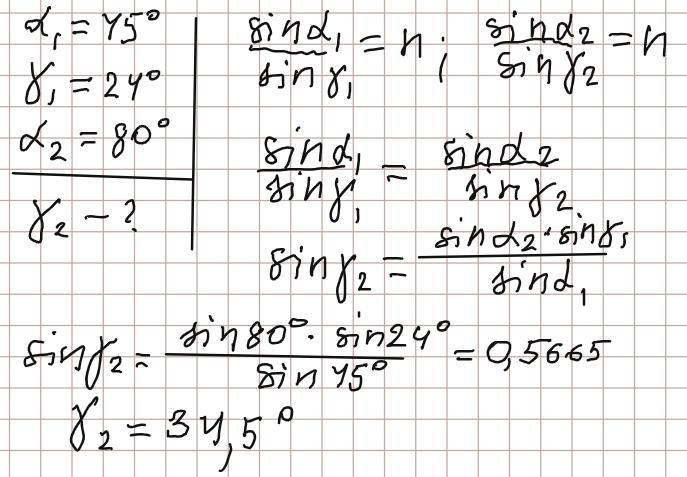 α₁ = 45°
γ₁ = 24°
α₂ = 80°
γ₂ – ?
sinα₁/sinγ₁ = n ; sinα₂/sinγ₂ = n
sinα₁/sinγ₁ = sinα₂/sinγ₂
sinγ₂ = sinα₂·sinγ₁/sinα₁
sinγ₂ = sin80°·sin24°/sin45° = 0,5665
γ₂ = 34,5°